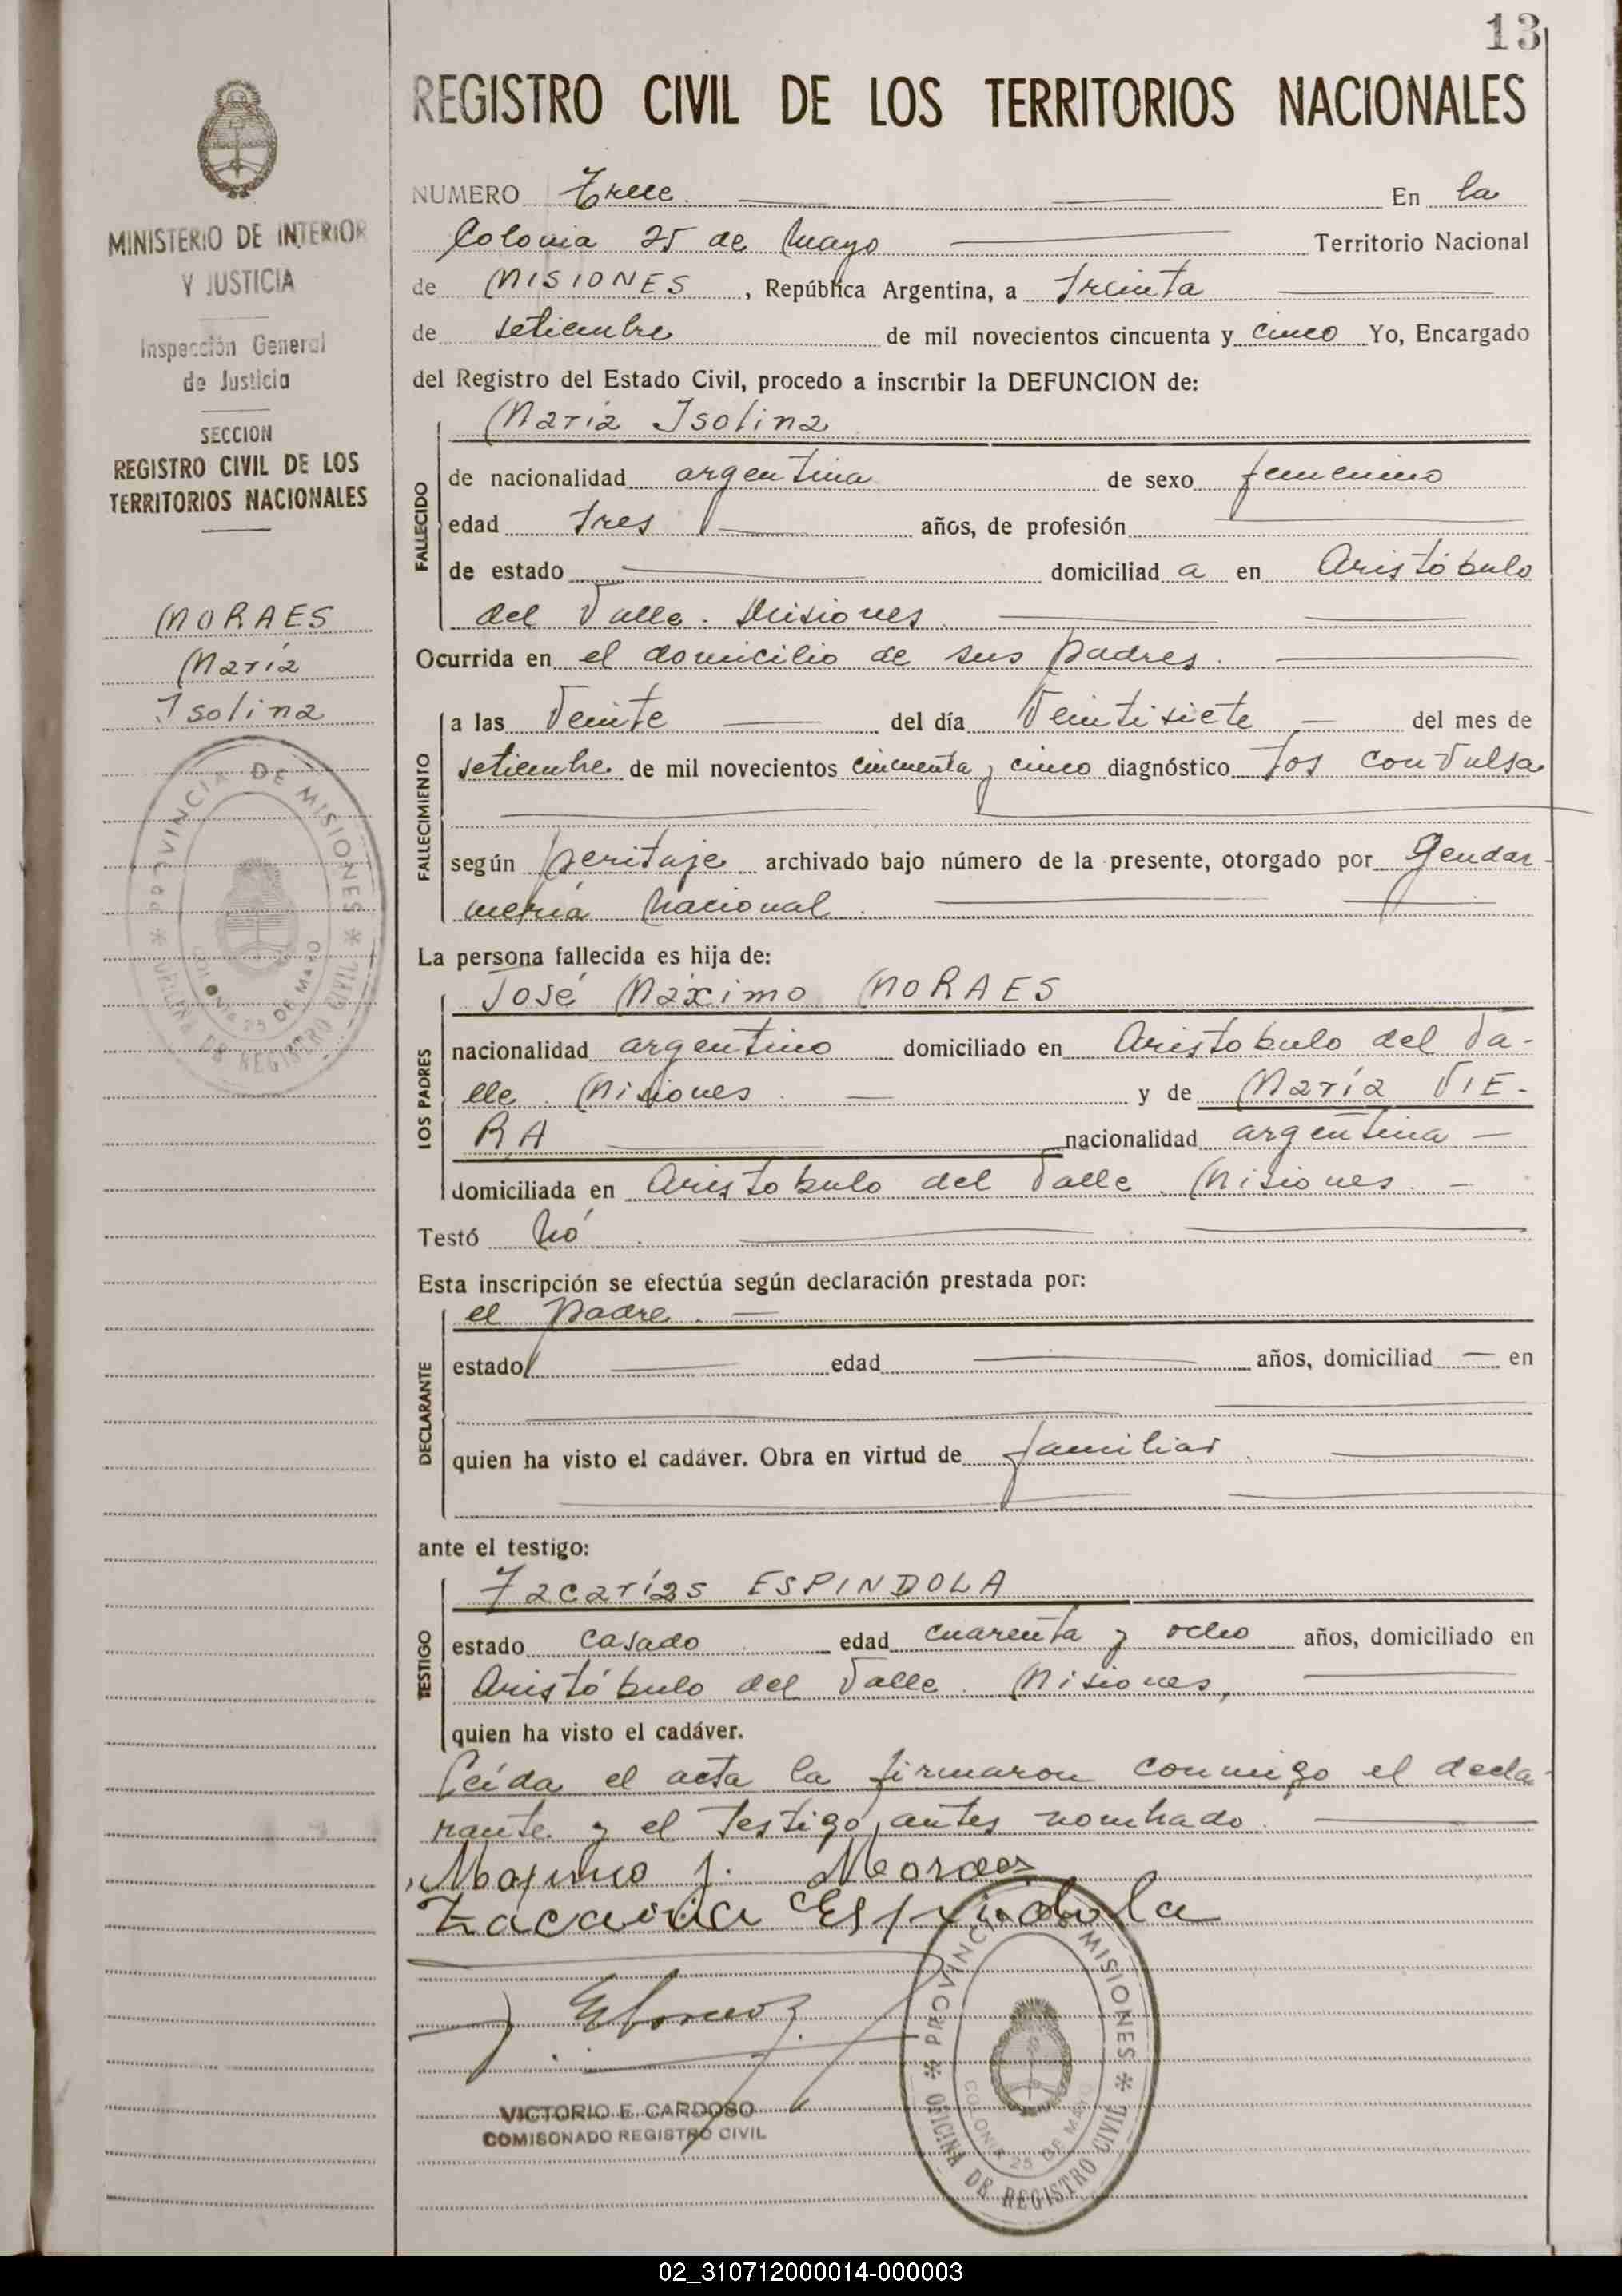 13
REGISTRO CIVIL DE LOS TERRITORIOS NACIONALES
MINISTERIO DE INTERIOR
Y JUSTICIA
Inspección General
de Justicia
SECCION
REGISTRO CIVIL DE LOS
TERRITORIOS NACIONALES
MORAES
María
Isolina
PROVINCIA DE MISIONES
COLONIA 25 DE MAYO
OFICINA DE REGISTRO CIVIL
NUMERO Trece. En la
Colonia 25 de Mayo Territorio Nacional
de MISIONES, República Argentina, a treinta
de setiembre de mil novecientos cincuenta y cinco Yo, Encargado
del Registro del Estado Civil, procedo a inscribir la DEFUNCION de:
María Isolina
FALLECIDO
de nacionalidad argentina de sexo femenino
edad tres años, de profesión
de estado domiciliad a en Aristóbulo
del Valle. Misiones
Ocurrida en el domicilio de sus padres.
FALLECIMIENTO
a las veinte del día veintisiete del mes de
setiembre de mil novecientos cincuenta y cinco diagnóstico Tos convulsa
según peritaje archivado bajo número de la presente, otorgado por Gendar-
mería Nacional.
La persona fallecida es hija de:
LOS PADRES
José Máximo MORAES
nacionalidad argentino domiciliado en Aristobulo del Va-
lle. Misiones. y de María VIE-
RA nacionalidad argentina
domiciliada en Aristobulo del Valle. Misiones.
Testó Nó.
Esta inscripción se efectúa según declaración prestada por:
DECLARANTE
el padre.
estado edad años, domiciliad en
quien ha visto el cadáver. Obra en virtud de familiar.
ante el testigo:
TESTIGO
Zacarías ESPINDOLA
estado casado edad cuarenta y ocho años, domiciliado en
Aristóbulo del Valle. Misiones,
quien ha visto el cadáver.
Leída el acta la firmaron conmigo el decla-
rante y el testigo antes nombrado.
Maximo J. Moraes
Zacaria Espindola
VICTORIO E. CARDOSO
COMISONADO REGISTRO CIVIL
PROVINCIA DE MISIONES
COLONIA 25 DE MAYO
OFICINA DE REGISTRO CIVIL
02_310712000014-000003